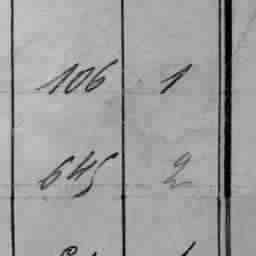 106 1
645 2